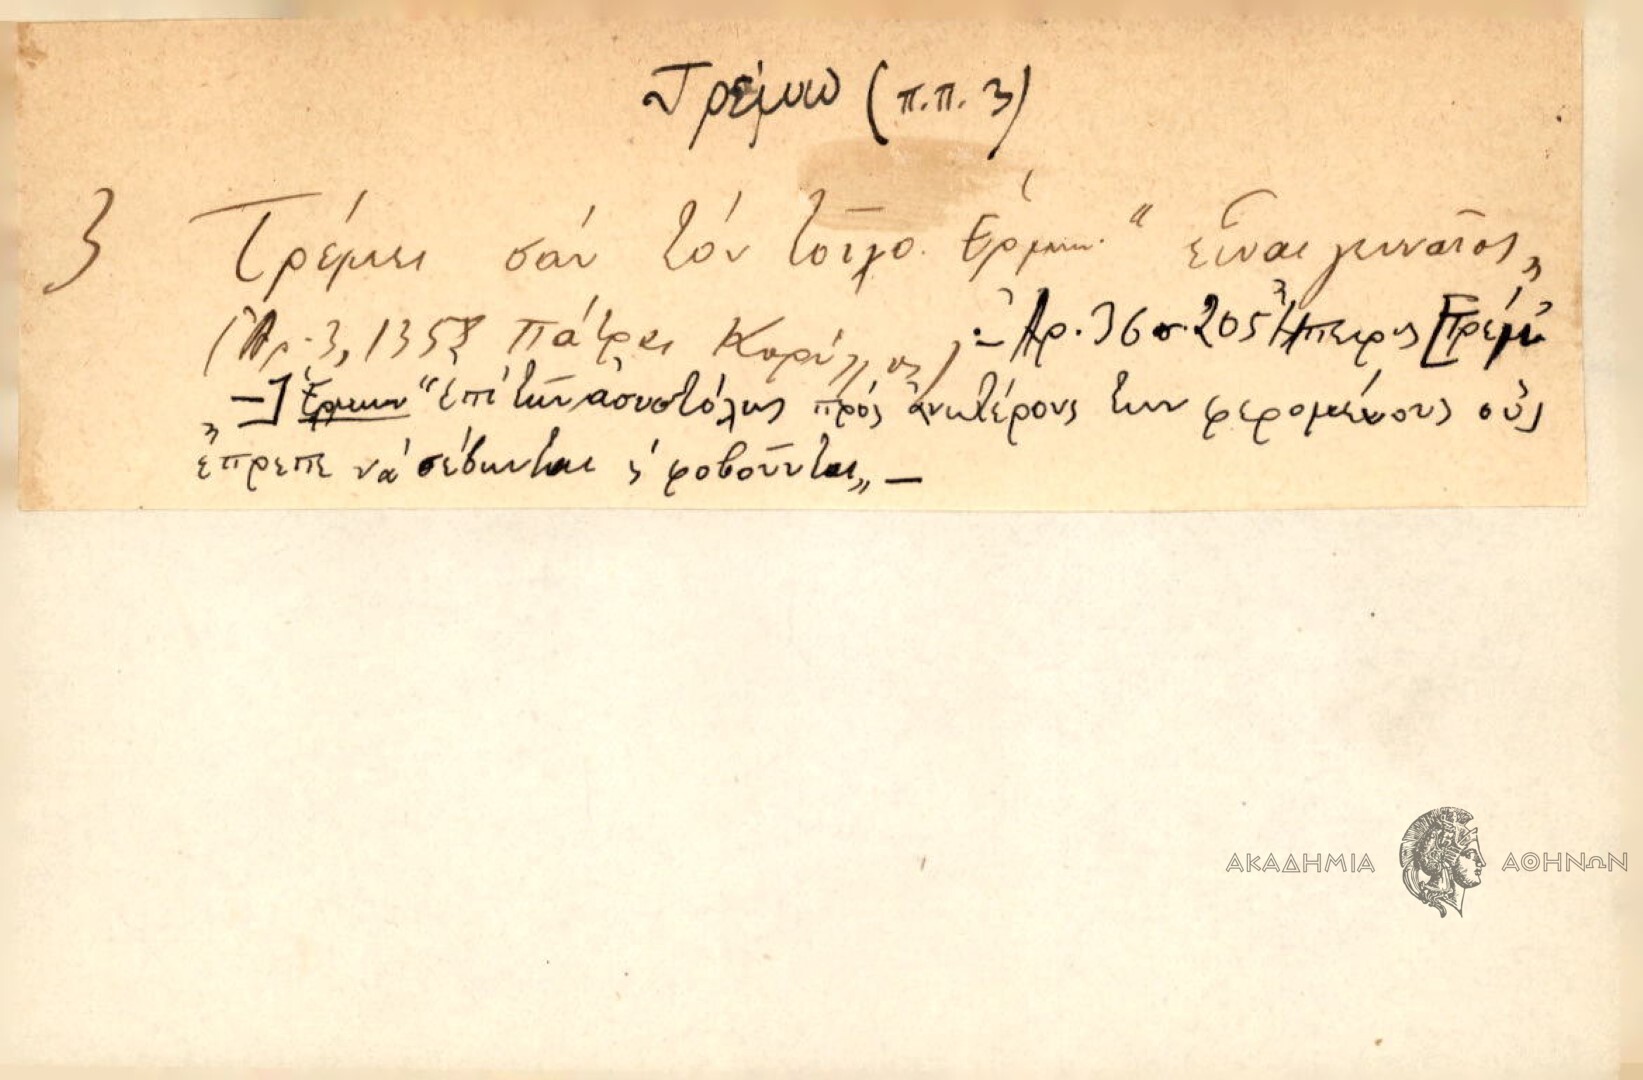 Τρέμω (π.π. 3)
3 Τρέμει σάν τόν τοίχο. Ἑρμην. “εἶναι γενναῖος„
(Ἀρ. 3, 1353 Πάτραι Κορύλλος) .– Ἀρ. 36 σ. 205 Ἤπειρος [Τρέμ'
–] Ἑρμην “ἐπί τῶν ἀσυστόλως πρός ἀνωτέρους των φερομένους οὕς
ἔπρεπε νά σέβωνται ἤ φοβοῦνται„ –
ΑΚΑΔΗΜΙΑ ΑΘΗΝΩΝ